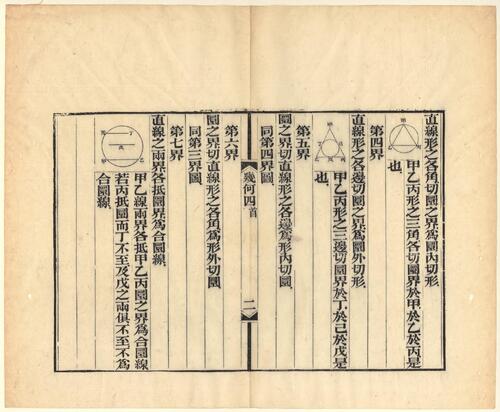 直線形之各角切圜之界為圜內切形
甲乙丙形之三角各切圜界於甲於乙於丙是
也
第四界
直線形之各邊切圜之界為圜外切形
甲乙丙形之三邊切圜界於丁於己於戊是
也
第五界
圜之界切直線形之各邊為形內切圜
同第四界圖
幾何四首
二
第六界
圜之界切直線形之各角為形外切圜
同第三界圖
第七界
直線之兩界各抵圜界為合圜線
甲乙線兩界各抵甲乙丙圜之界為合圜線
若丙抵圜而丁不至及戊之兩俱不至不為
合圜線